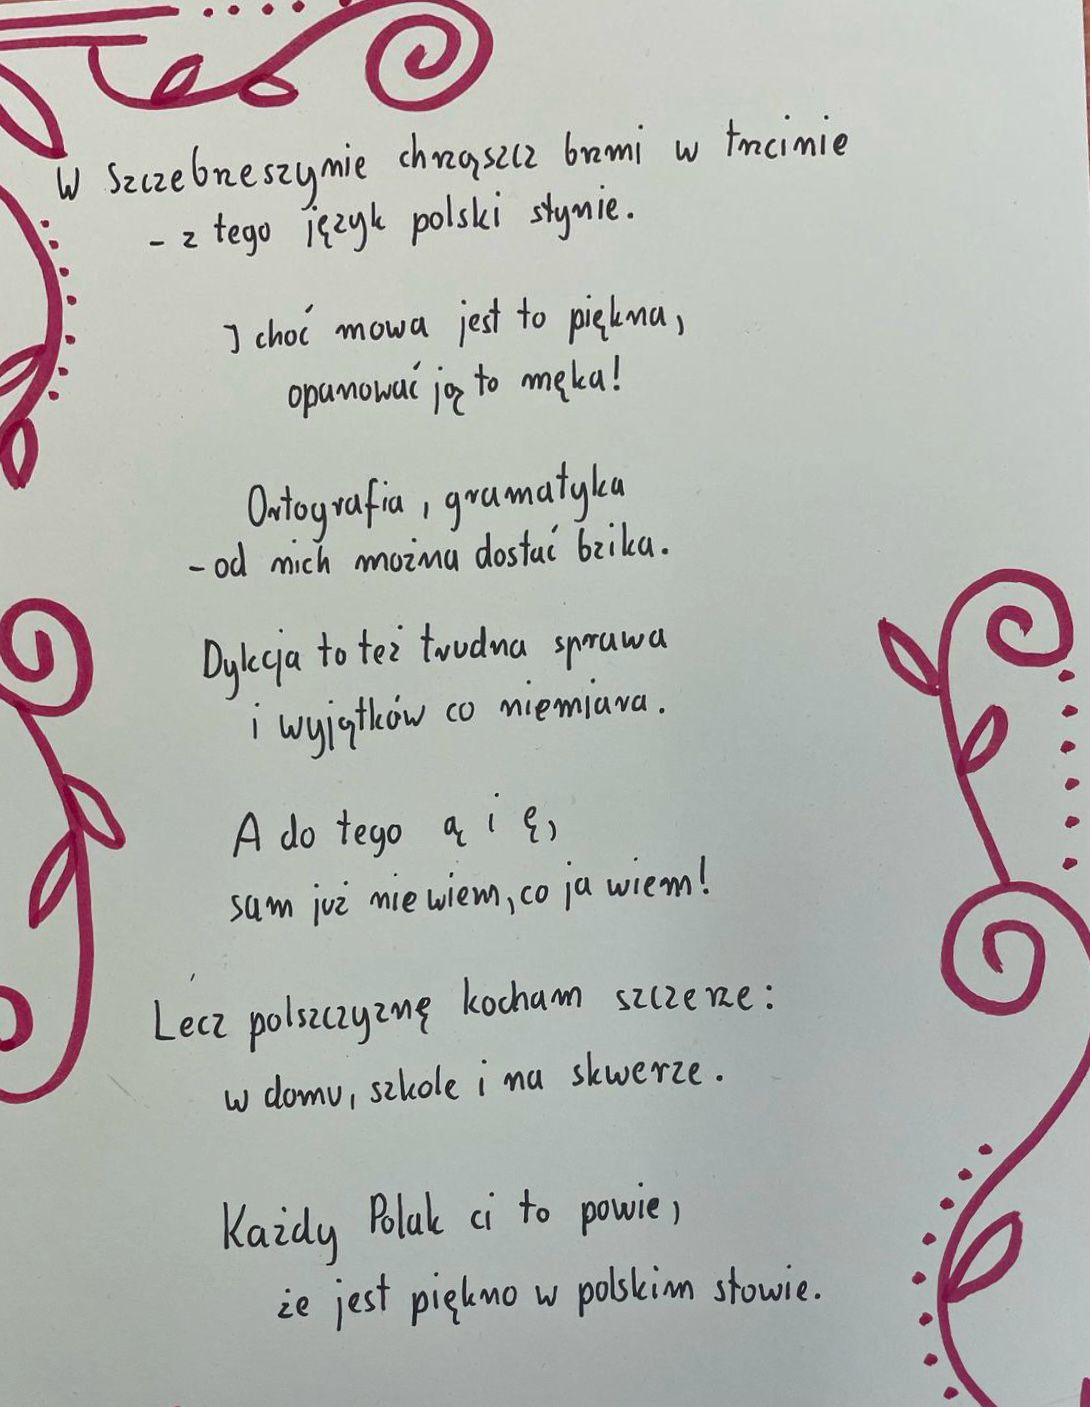 W Szczebrzeszynie chrząszcz brzmi w trzcinie
- z tego język polski słynie.
I choć mowa jest to piękna,
opanować ją to męka!
Ortografia, gramatyka
- od nich można dostać bzika.
Dykcja to też trudna sprawa
i wyjątków co niemiara.
A do tego ą i ę,
sam już nie wiem, co ja wiem!
Lecz polszczyznę kocham szczerze:
w domu, szkole i na skwerze.
Każdy Polak ci to powie,
że jest piękno w polskim słowie.